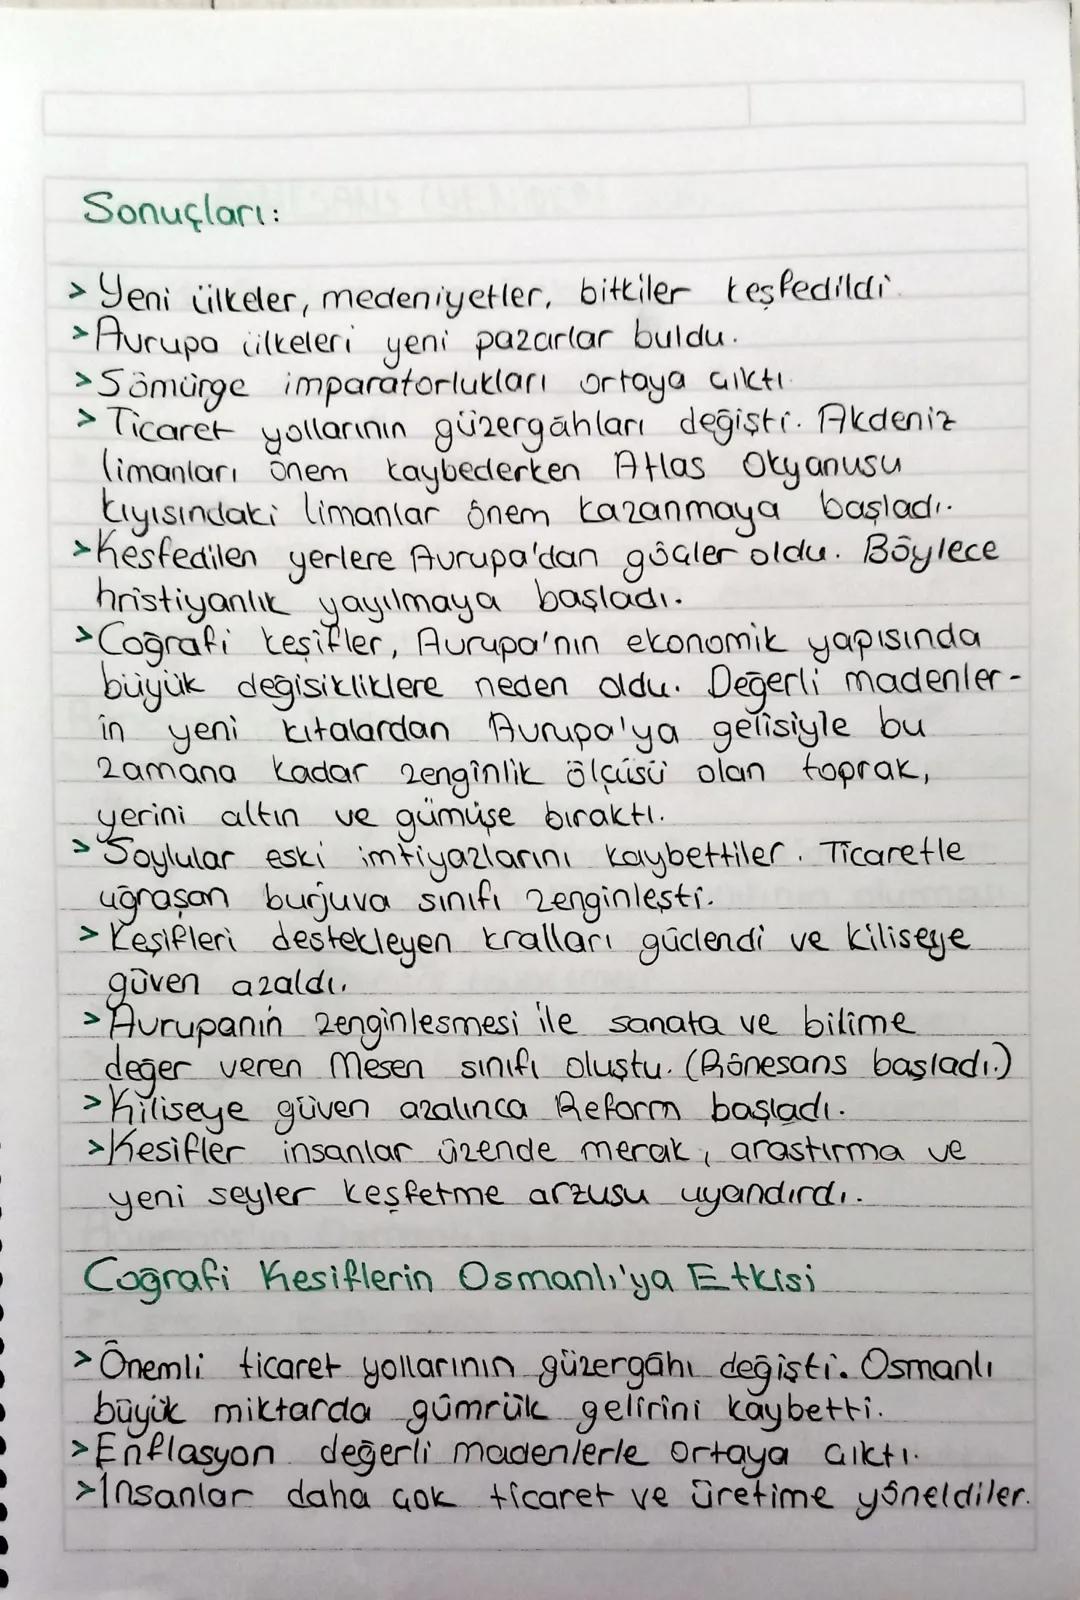 Sonuçları:
> Yeni ülkeler, medeniyetler, bitkiler keşfedildi.
> Avrupa ülkeleri yeni pazarlar buldu.
> Sömürge imparatorlukları ortaya çıktı.
> Ticaret yollarının güzergâhları değişti. Akdeniz
limanları önem kaybederken Atlas Okyanusu
kıyısındaki limanlar önem kazanmaya başladı.
> Kesfedilen yerlere Avrupa'dan göçler oldu. Böylece
hristiyanlık yayılmaya başladı.
> Coğrafi keşifler, Avrupa'nın ekonomik yapısında
büyük değisikliklere neden oldu. Değerli madenler-
in yeni kıtalardan Avrupa'ya gelisiyle bu
zamana kadar zenginlik ölçüsü olan toprak,
yerini altın ve gümüşe bıraktı.
> Soylular eski imtiyazlarını kaybettiler. Ticaretle
uğraşan burjuva sınıfı zenginleşti.
> Keşifleri destekleyen kralları güçlendi ve kiliseye
güven azaldı.
> Avrupanın zenginlesmesi ile sanata ve bilime
değer veren Mesen sınıfı oluştu. (Rönesans başladı.)
> Kiliseye güven azalınca Reform başladı.
> Kesifler insanlar üzende merak, arastırma ve
yeni seyler keşfetme arzusu uyandırdı.
Coğrafi Kesiflerin Osmanlı'ya Etkisi
> Önemli ticaret yollarının güzergâhı değişti. Osmanlı
büyük miktarda gümrük gelirini kaybetti.
> Enflasyon değerli madenlerle ortaya çıktı.
> İnsanlar daha çok ticaret ve üretime yöneldiler.